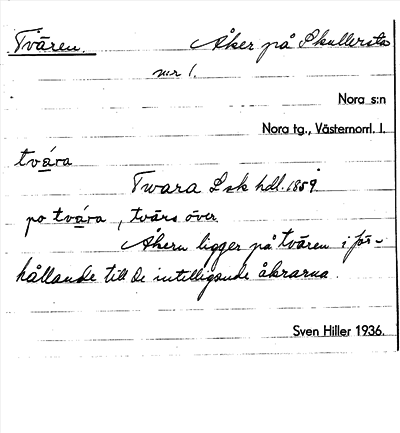 Tvären. Åker på Skullersta
nr 1.
Nora s:n
Nora tg., Västernorrl. l.
tvära
Twara Lsk hdl. 1859
po tvära, tvärs över.
Åkern ligger på tvären i för-
hållande till de intilligande åkrarna.
Sven Hiller 1936.